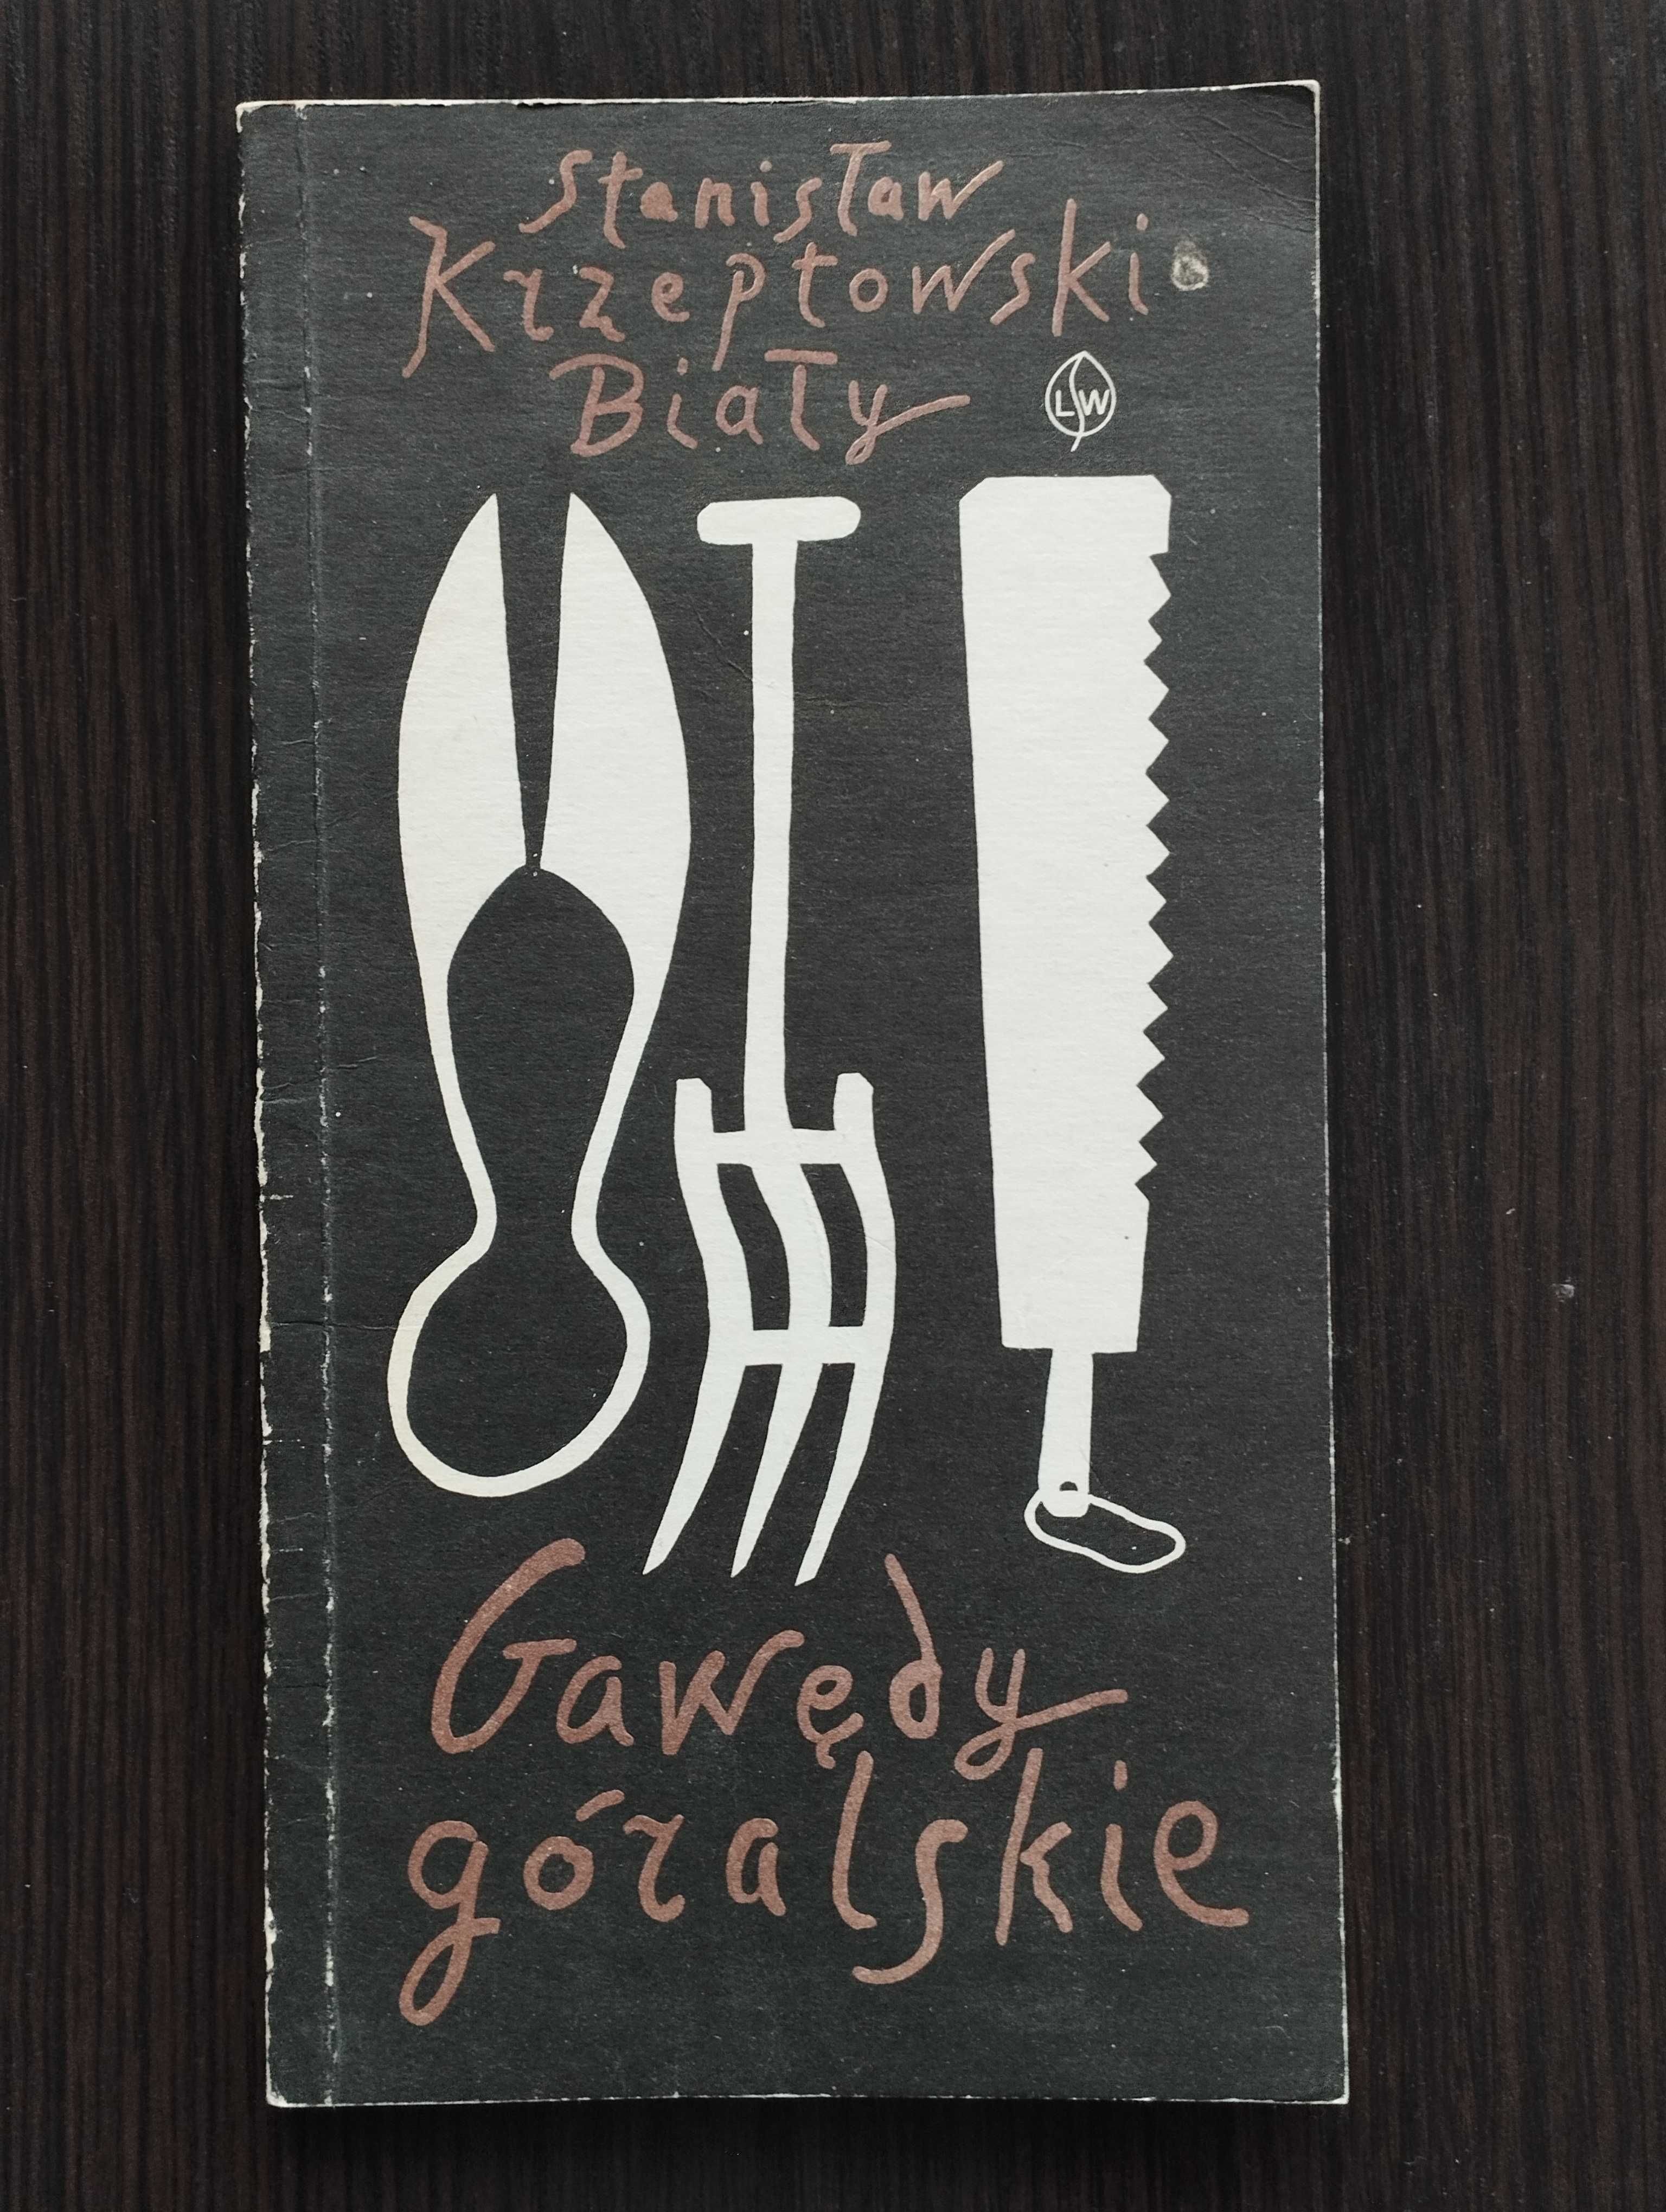 Stanisław
Krzeptowski
Biały
LSW
Gawędy
góralskie